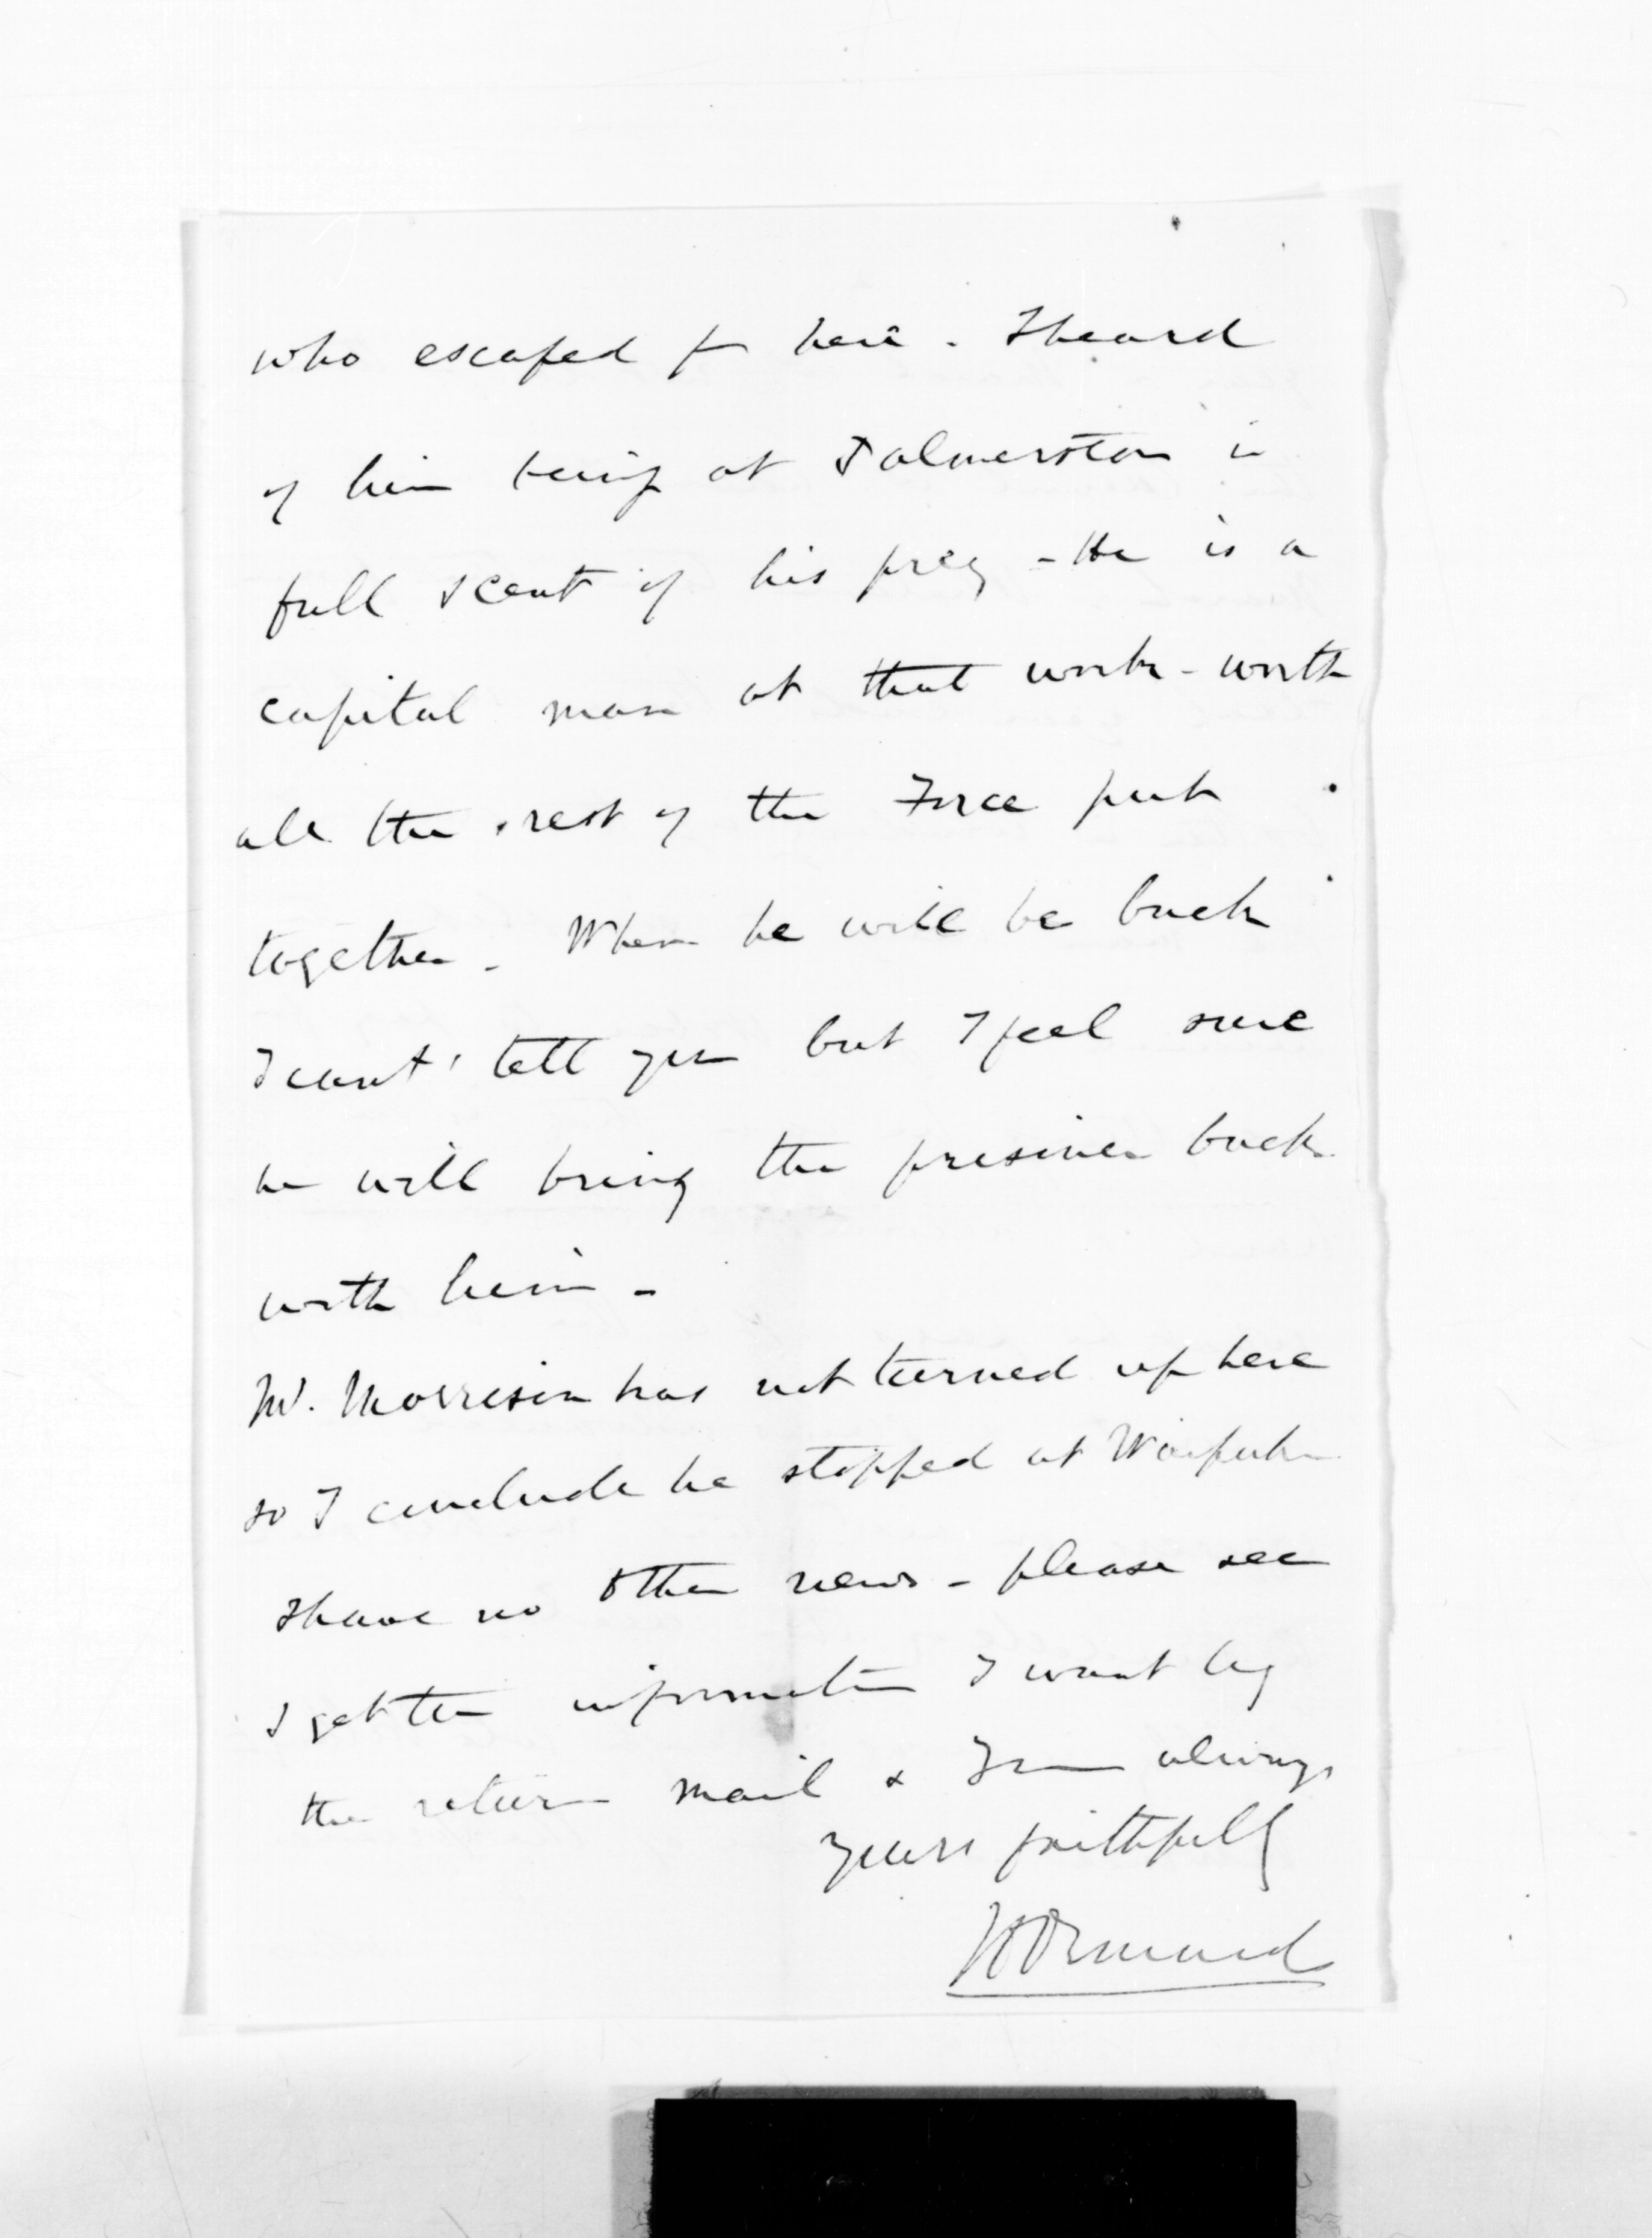 who escaped fm here. I heard
of him being at Palmerston in
full scent of his prey - He is a
capital man at that work - worth
all the rest of the Force put
together. When he will be back
I cant' tell you but I feel sure
he will bring the prisoner back
with him -
Mr. Morrison has not turned up here
so I conclude he stopped at Waipuk
I have no other news - please see
I get the information I want by
the return mail & I am always
yours faithfully
JDOrmond